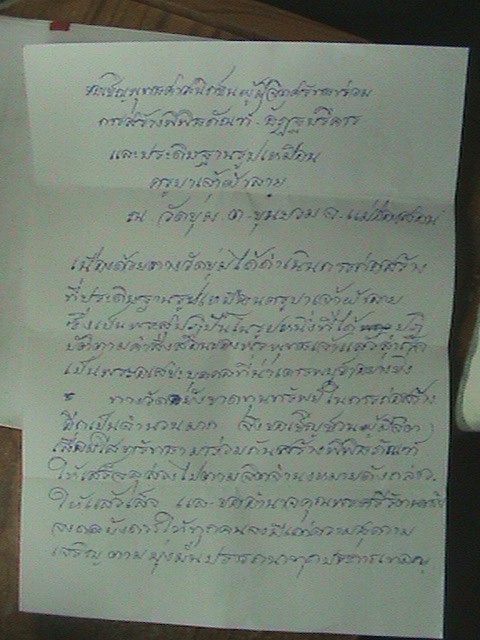 ขอเชิญพุทธศาสนิกชนผู้มีจิตศรัทธาร่วม
การสร้างพิพิธภัณฑ์ - อัฏฐบริขาร
และประดิษฐานรูปเหมือน
ครูบาเจ้าฟ้าลาม
ณ วัดขุ่ม อ.ขุนยวม จ.แม่ฮ่องสอน
เนื่องด้วยทางวัดขุ่มได้ดำเนินการก่อสร้าง
ที่ประดิษฐานรูปเหมือนครูบาเจ้าฟ้าลาม
ซึ่งเป็นพระสุปฏิปันโนรูปหนึ่งที่ได้ ปฏิ
บัติตามคำสั่งสอนของพระพุทธเจ้าแล้ว
เป็นพระอริยบุคคลที่น่าเคารพบูชาอย่างยิ่ง
ทางวัดยังขาดทุนทรัพย์ในการก่อสร้าง
อีกเป็นจำนวนมาก จึงขอเชิญชวนผู้มีจิต
มาร่วมกันสร้างพิพิธภัณฑ์
ให้สำเร็จลุล่วงไปตามเจตจำนงหมายดังกล่าว
ให้แล้วเสร็จ และขออำนาจคุณพระศรีรัตนตรัย
จงดลบันดาลให้ทุกคนจงมีแต่ความสุขความ
เจริญ ตามมุ่งมั่นปรารถนาทุกประการเทอญ